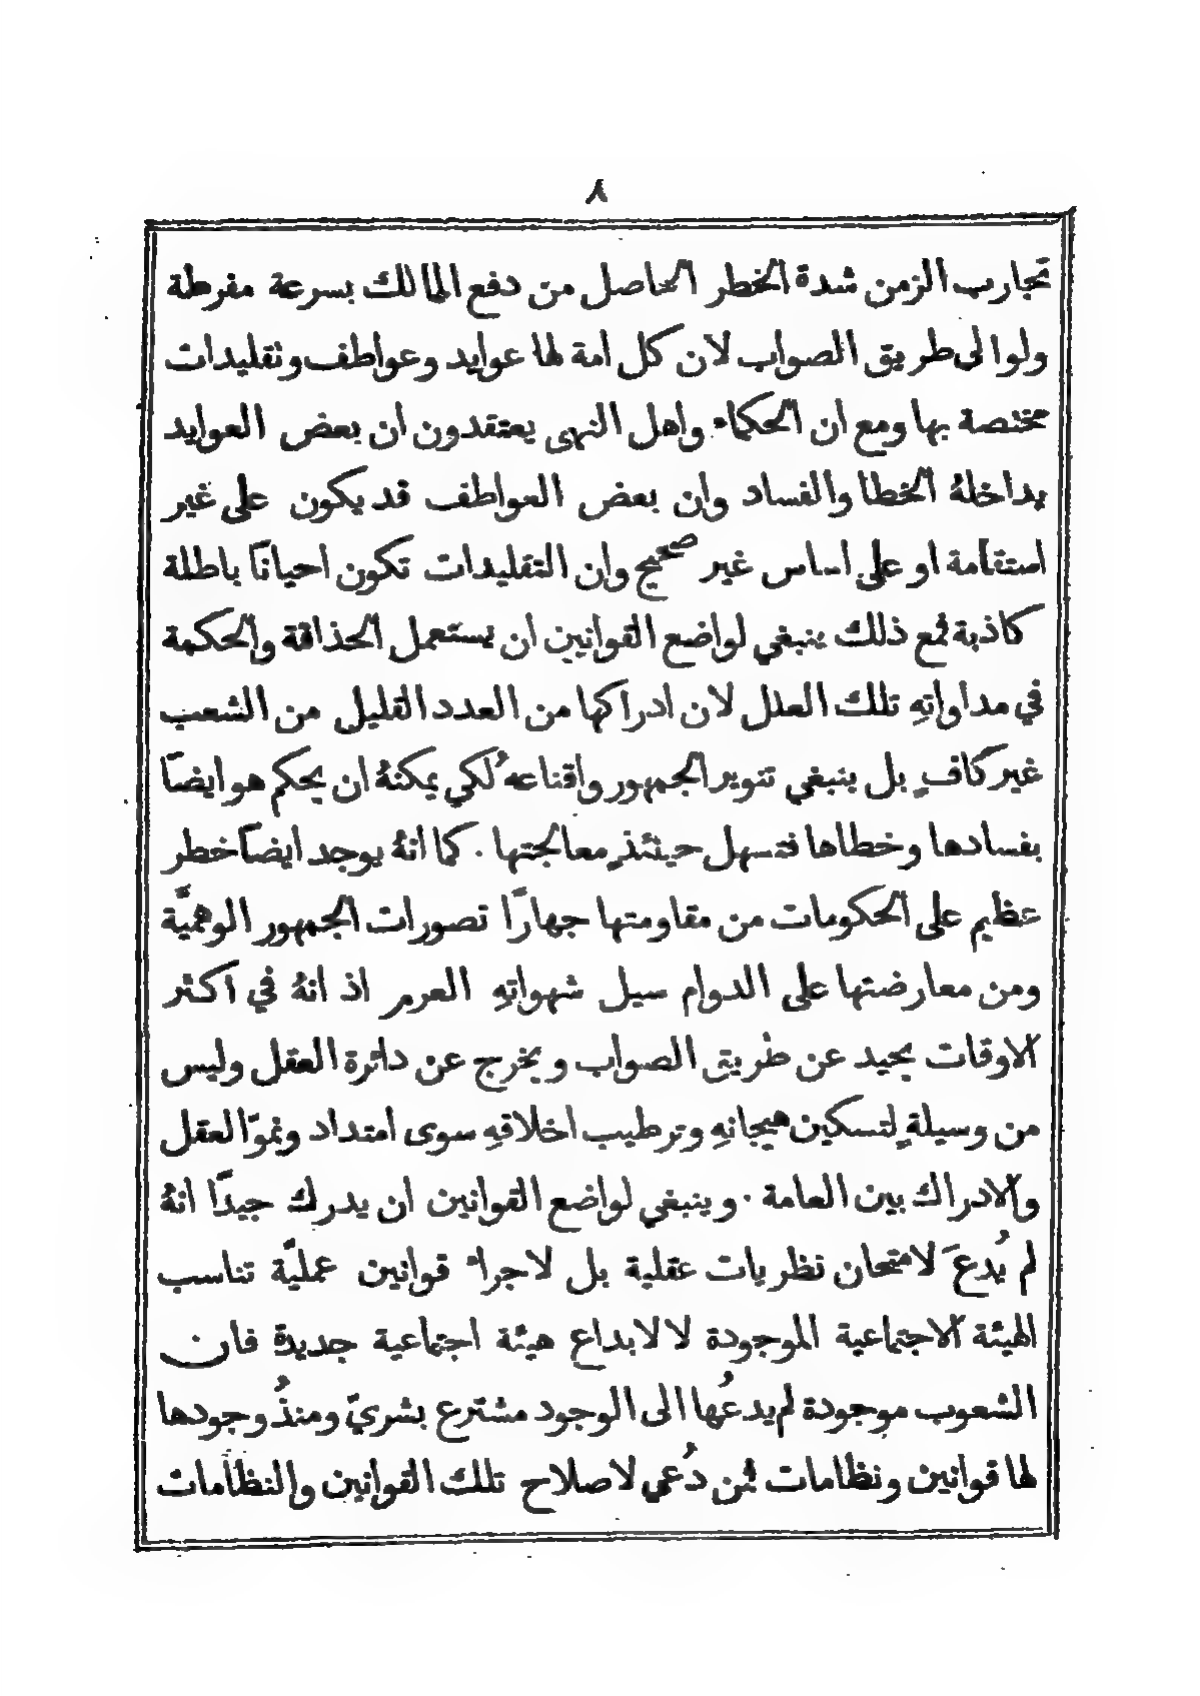 ٨
تجارب الزمن شدة الخطر الحاصل من دفع الممالك بسرعة مفرطة
ولوالى طريق الصواب لان كل امة لها عوايد وعواطف وتقليدات
مختصة بها ومع ان الحكماء واهل النهى يعتقدون ان بعض العوايد
يداخلهُ الخطا والفساد وان بعض العواطف قد يكون على غير
استقامة او على اساس غير صحيح وان التقليدات تكون احيانًا باطلة
كاذبة فمع ذلك ينبغي لواضع القوانين ان يستعمل الحذاقة والحكمة
في مداواتهِ تلك العلل لان ادراكها من العدد القليل من الشعب
غير كافٍ بل ينبغي تنوير الجمهور واقناعهُ لكي يمكنهُ ان يحكم هو ايضًا
بفسادها وخطاها فتسهل حينئذٍ معالجتها . كما انهُ يوجد ايضًا خطر
عظيم على الحكومات من مقاومتها جهارًا تصورات الجمهور الوهميَّة
ومن معارضتها على الدوام سيل شهواتهِ العرمر اذ انهُ في اكثر
الاوقات يحيد عن طريق الصواب ويخرج عن دائرة العقل وليس
من وسيلةٍ لتسكين هيجانهِ وترطيب اخلاقهِ سوى امتداد ونموّ العقل
والادراك بين العامة . وينبغي لواضع القوانين ان يدرك جيدًا انهُ
لم يُدعَ لامتحان نظريات عقلية بل لاجراء قوانين عمليَّة تناسب
الهيئة الاجتماعية الموجودة لا لابداع هيئة اجتماعية جديدة فان
الشعوب موجودة لم يدعُها الى الوجود مشترع بشريّ ومنذُ وجودها
لها قوانين ونظامات فمن دُعي لاصلاح تلك القوانين والنظامات